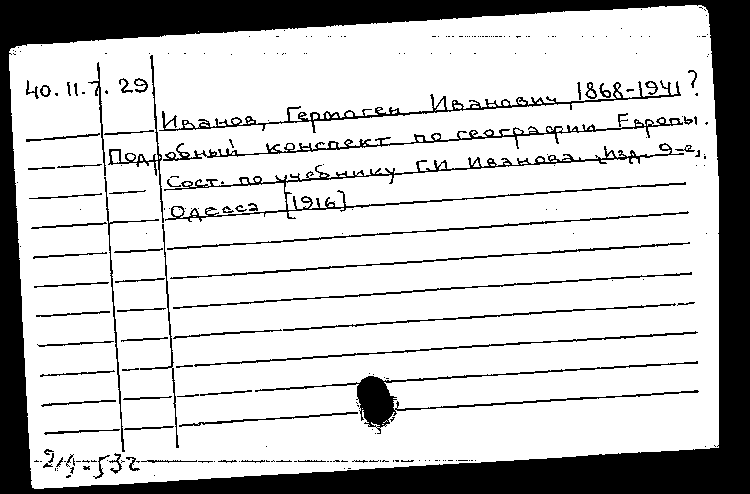 40.11.7.29
Иванов, Гермоген Иванович, 1868-1941?
Подробный конспект по географии Европы.
Сост. по учебнику Г.И Иванова. Изд. 9-е,
Одесса, [1916]